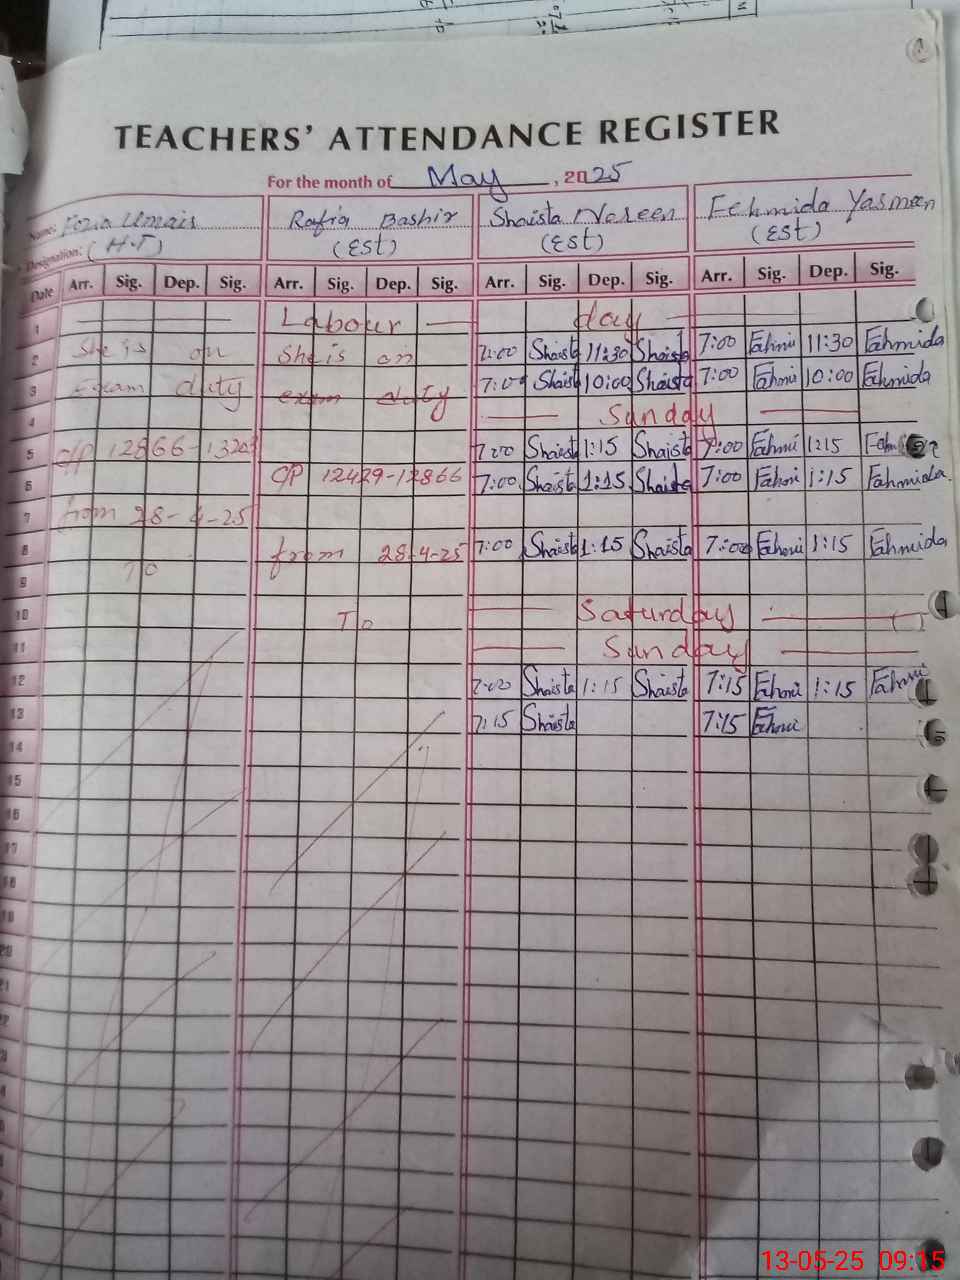 TEACHERS' ATTENDANCE REGISTER
For the month of May, 2025
Name: Fozia Umais Rafia Bashir Shaista Nareen Fehmida Yasmeen
Designation: (H.T) (Est) (Est) (Est)
Date Arr. Sig. Dep. Sig. Arr. Sig. Dep. Sig. Arr. Sig. Dep. Sig. Arr. Sig. Dep. Sig.
1 Labour day
2 She is on She is on 7:00 Shaista 11:30 Shaista 7:00 Fahmi 11:30 Fahmida
3 Exam duty exam duty 7:00 Shaist 10:00 Shaista 7:00 Fahmi 10:00 Fahmida
4 Sunday
5 O/P 12866-13203 7:00 Shaista 1:15 Shaista 7:00 Fahmi 1:15
6 O/P 12429-12866 7:00 Shaista 1:15 Shaista 7:00 Fahmi 1:15 Fahmida
7 from 28-4-25
8 from 28-4-25 7:00 Shaista 1:15 Shaista 7:00 Fahmi 1:15 Fahmida
9 To
10 To Saturday
11 Sunday
12 7:00 Shaista 1:15 Shaista 7:15 Fahmi 1:15 Fahmi
13 7:15 Shaista 7:15 Fahmi
14
15
16
17
18
19
20
21
13-05-25 09:15